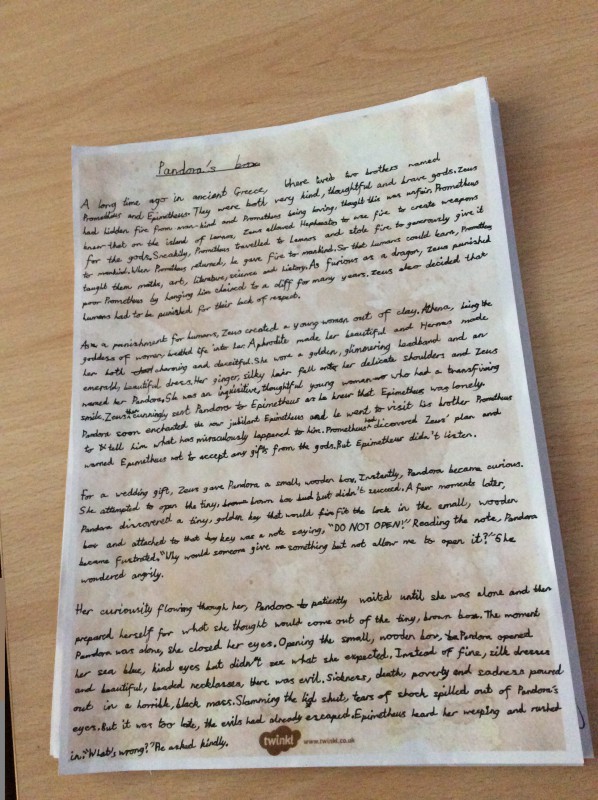 Pandora's box
A long time ago in ancient Greece, there lived two brothers named
Prometheus and Epimetheus. They were both very kind, thoughtful and brave gods. Zeus
had hidden fire from man-kind and Prometheus being loving, thought this was unfair. Prometheus
knew that on the island of Lemnos, Zeus allowed Hephaestus to use fire to create weapons
for the gods. Sneakily, Prometheus travelled to Lemnos and stole fire to generously give it
to mankind. When Prometheus returned, he gave fire to mankind. So that humans could learn, Prometheus
taught them maths, art, literature, science and history. As furious as a dragon, Zeus punished
poor Prometheus by hanging him chained to a cliff for many years. Zeus also decided that
humans had to be punished for their lack of respect.
As a punishment for humans, Zeus created a young woman out of clay. Athena, being the
goddess of women, life into her. Aphrodite made her beautiful and Hermes made
her both charming and deceitful. She wore a golden, glimmering headband and an
emerald, beautiful dress. Her ginger, silky hair fell her delicate shoulders and Zeus
named her Pandora. She was an inquisitive, thoughtful young woman who had a transfixing
smile. Zeus then cunningly sent Pandora to Epimetheus as he knew that Epimetheus was lonely.
Pandora soon enchanted the now jubilant Epimetheus and he went to visit his brother Prometheus
to tell him what has miraculously happened to him. Prometheus dicovered Zeus' plan and
warned Epimetheus not to accept any gifts from the gods. But Epimetheus didn't listen.
For a wedding gift, Zeus gave Pandora a small, wooden box. Instantly, Pandora became curious.
She attempted to open the tiny, brown box but didn't succeed. A few moments later,
Pandora discovered a tiny, golden key that would fit the lock in the small, wooden
box and attached to that key was a note saying, "DO NOT OPEN!" Reading the note, Pandora
became fustrated. "Why would someone give me something but not allow me to open it?" She
wondered angily.
Her curiously flowing though her, Pandora patiently waited until she was alone and then
prepared herself for what she thought would come out of the tiny, brown box. The moment
Pandora was alone, she closed her eyes. Opening the small, wooden box, Pandora opened
her sea blue, kind eyes but didn't see what she expected. Instead of fine, silk dresses
and beautiful, beaded necklasses, there was evil. Sickness, death, poverty and sadness poured
out in a horrible, black mass. Slamming the lid shut, tears of shock spilled out of Pandora's
eyes. But it was too late, the evils had already escaped. Epimetheus heard her weeping and rushed
in. "What's wrong?" He asked kindly.
twinkl www.twinkl.co.uk